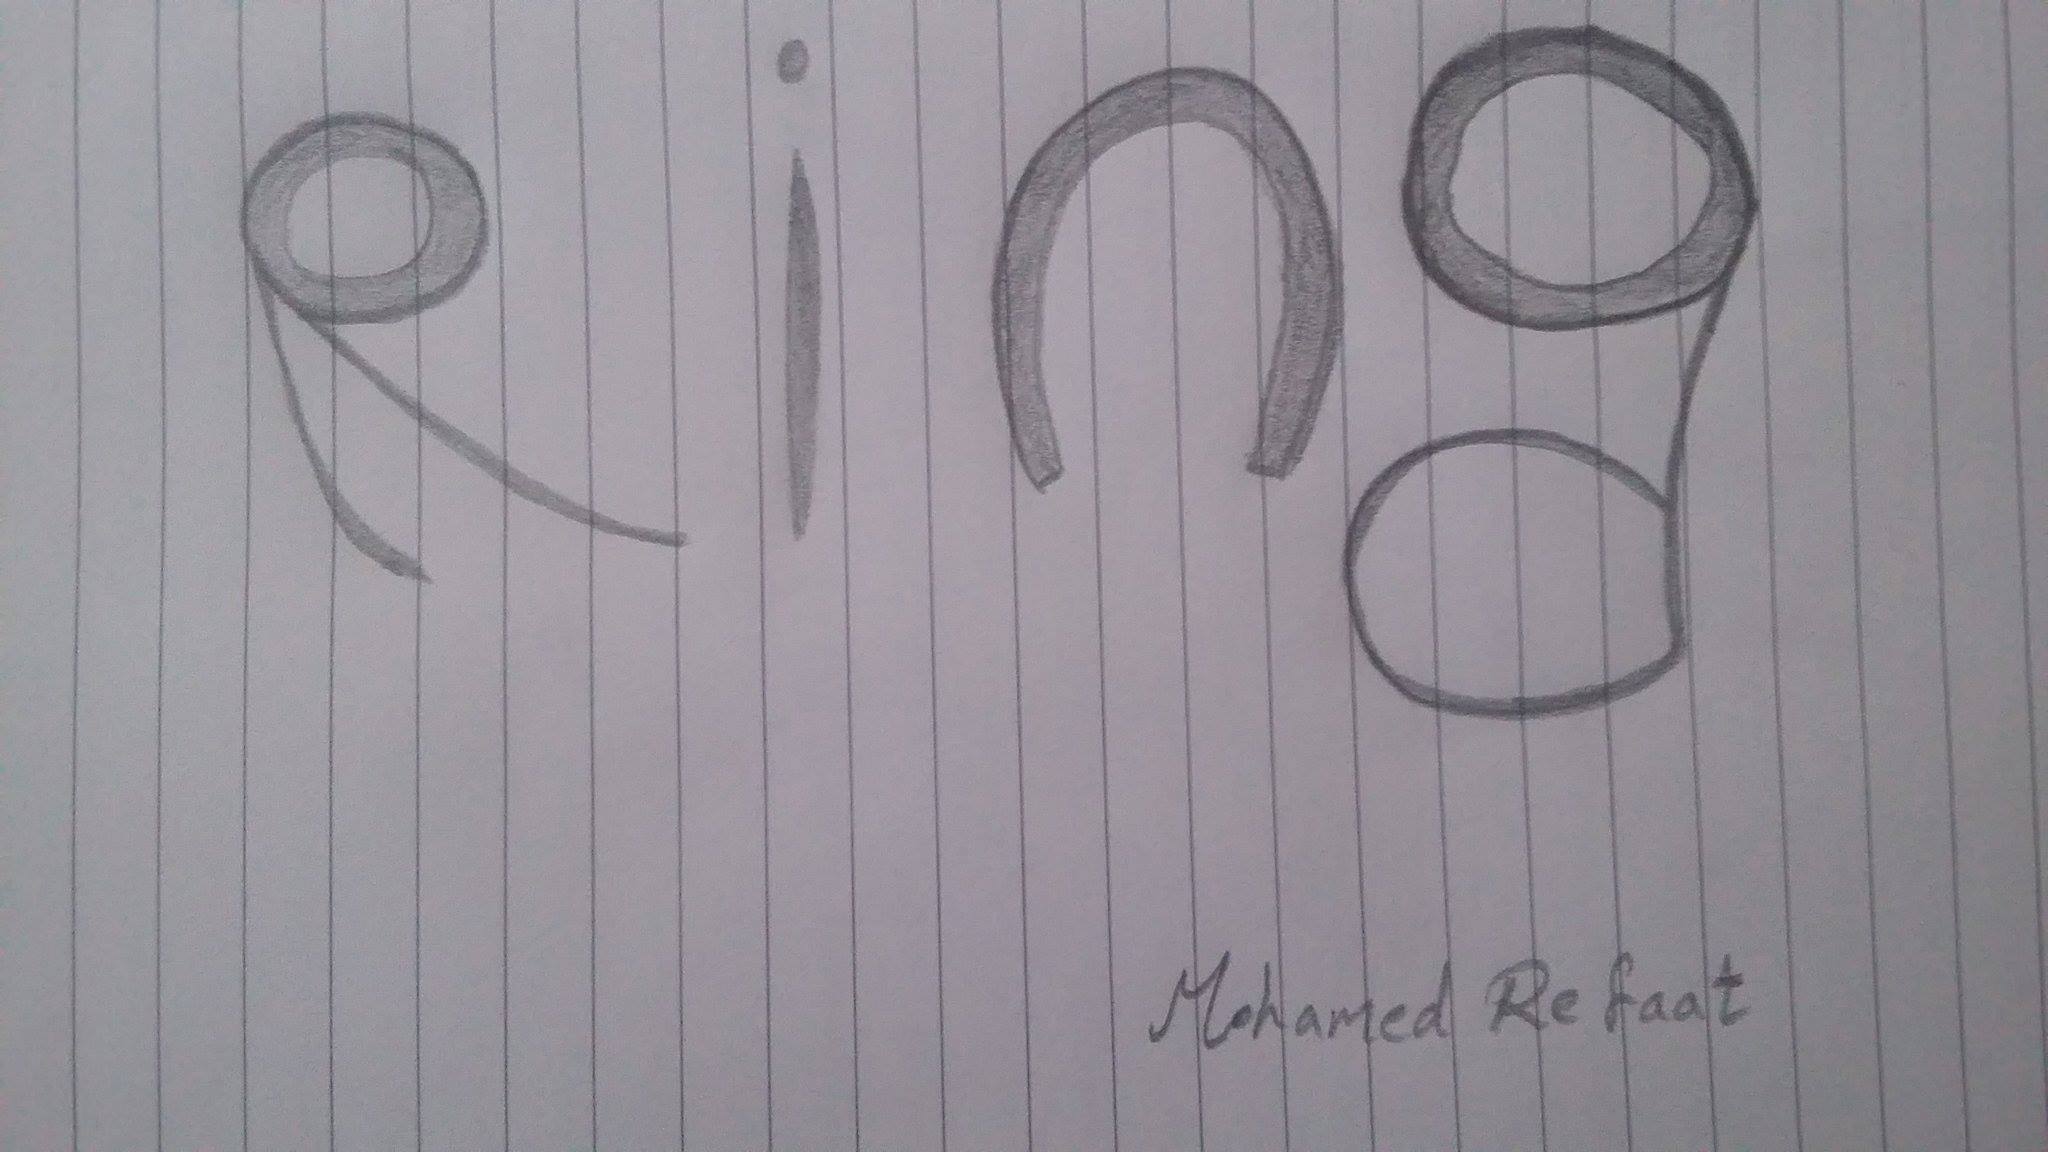 Ring
Mohamed Refaat